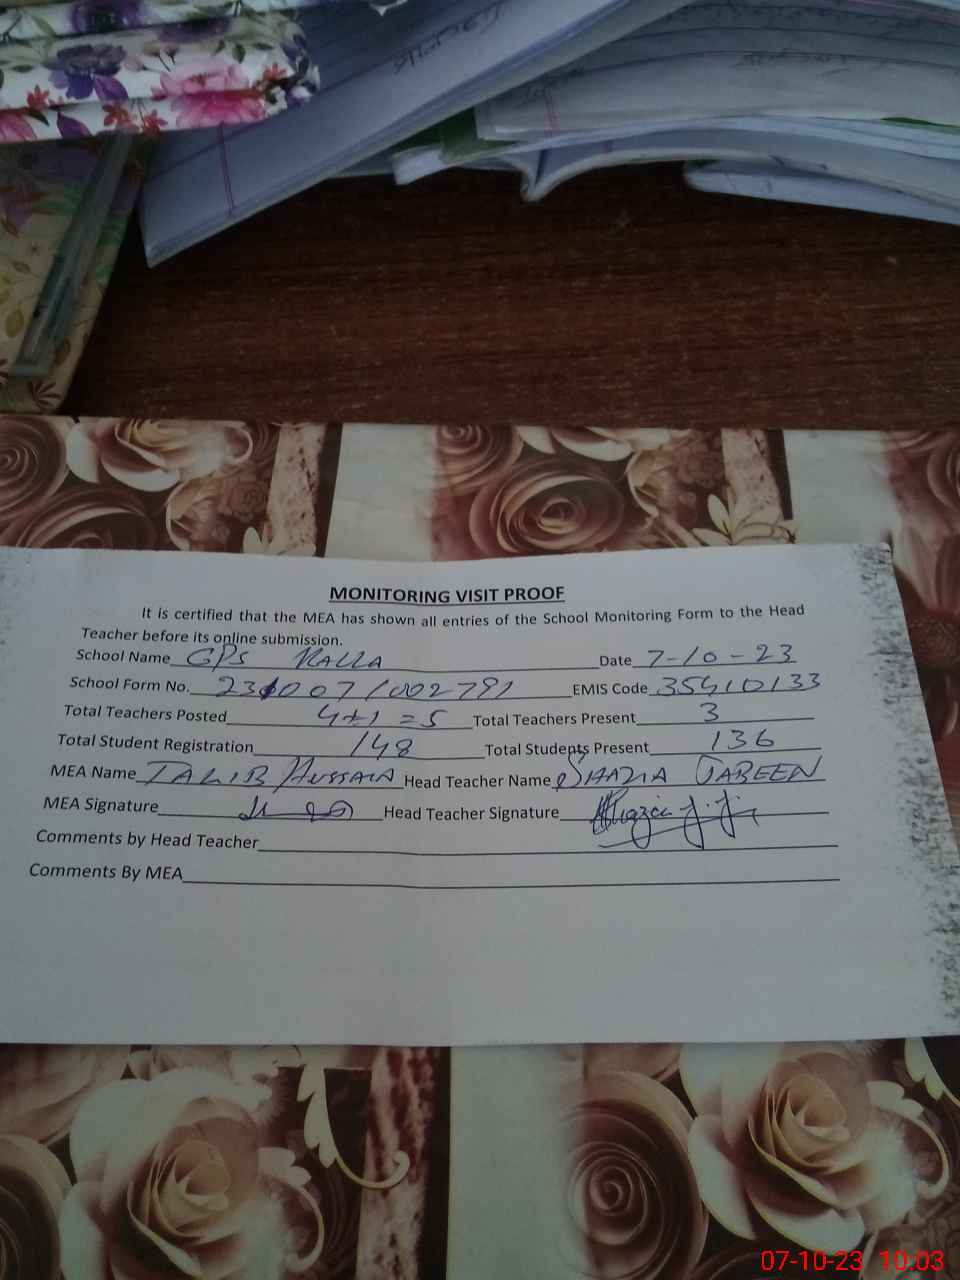 MONITORING VISIT PROOF
It is certified that the MEA has shown all entries of the School Monitoring Form to the Head
Teacher before its online submission.
School Name GPS RALLA Date 7-10-23
School Form No. 231007/002791 EMIS Code 35410133
Total Teachers Posted 4+1=5 Total Teachers Present 3
Total Student Registration 148 Total Students Present 136
MEA Name TALIB HUSSAIN Head Teacher Name SHAZIA JABEEN
MEA Signature Head Teacher Signature
Comments by Head Teacher
Comments By MEA
07-10-23 10:03